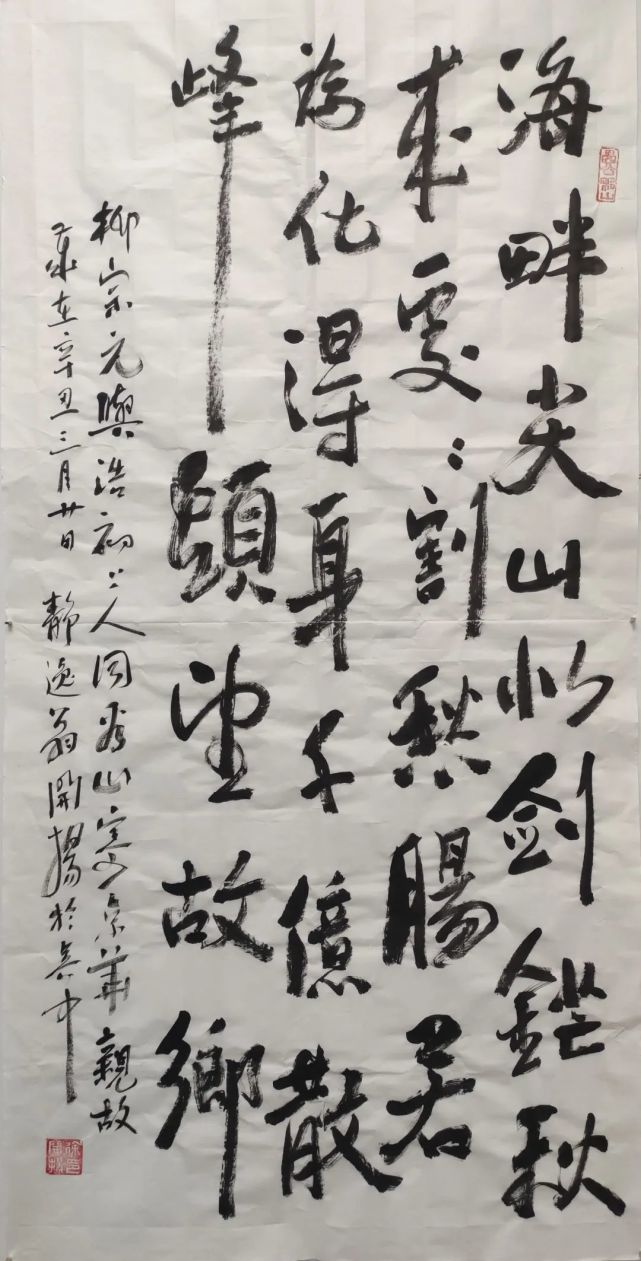 海畔尖山似剑鋩秋
來處〻割愁腸若
為化得身千億散
峰頭望故鄉
柳宗元與浩初上人同看山寄京華親故
歲在辛丑三月廿日 靜逸翁開揚於吳中